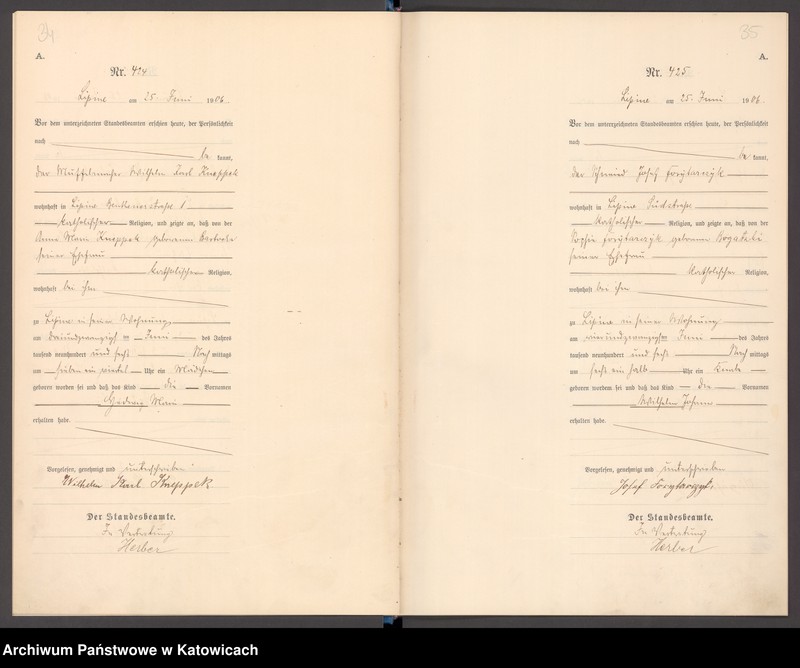 A.
Nr. 424
Lipine am 25. Juni 1906.
Vor dem unterzeichneten Standesbeamten erschien heute, der Persönlichkeit
nach
be kannt,
der Wilhelm Karl Kneppek
wohnhaft in Lipine 1
katholischer Religion, und zeigte an, daß von der
Kneppek geborenen
seiner Ehefrau
katholischer Religion,
wohnhaft bei ihm
zu Lipine in seiner Wohnung
am dreiundzwanzigsten Juni des Jahres
tausend neunhundert und sechs Nach mittags
um sieben ein viertel Uhr ein Mädchen
geboren worden sei und daß das Kind die Vornamen
Hedwig Marie
erhalten habe.
Vorgelesen, genehmigt und unterschrieben
Wilhelm Karl Kneppek
Der Standesbeamte.
In Vertretung
Herber
35
A.
Nr. 425
Lipine am 25. Juni 1906.
Vor dem unterzeichneten Standesbeamten erschien heute, der Persönlichkeit
nach
be kannt,
der Schmied Josef
wohnhaft in Lipine Südstraße
katholischer Religion, und zeigte an, daß von der
geborenen
seiner Ehefrau
katholischer Religion,
wohnhaft bei ihm
zu Lipine in seiner Wohnung
am vierundzwanzigsten Juni des Jahres
tausend neunhundert und sechs Nach mittags
um sechs ein halb Uhr ein Knabe
geboren worden sei und daß das Kind die Vornamen
Wilhelm Johann
erhalten habe.
Vorgelesen, genehmigt und unterschrieben
Josef
Der Standesbeamte.
In Vertretung
Herber
Archiwum Państwowe w Katowicach